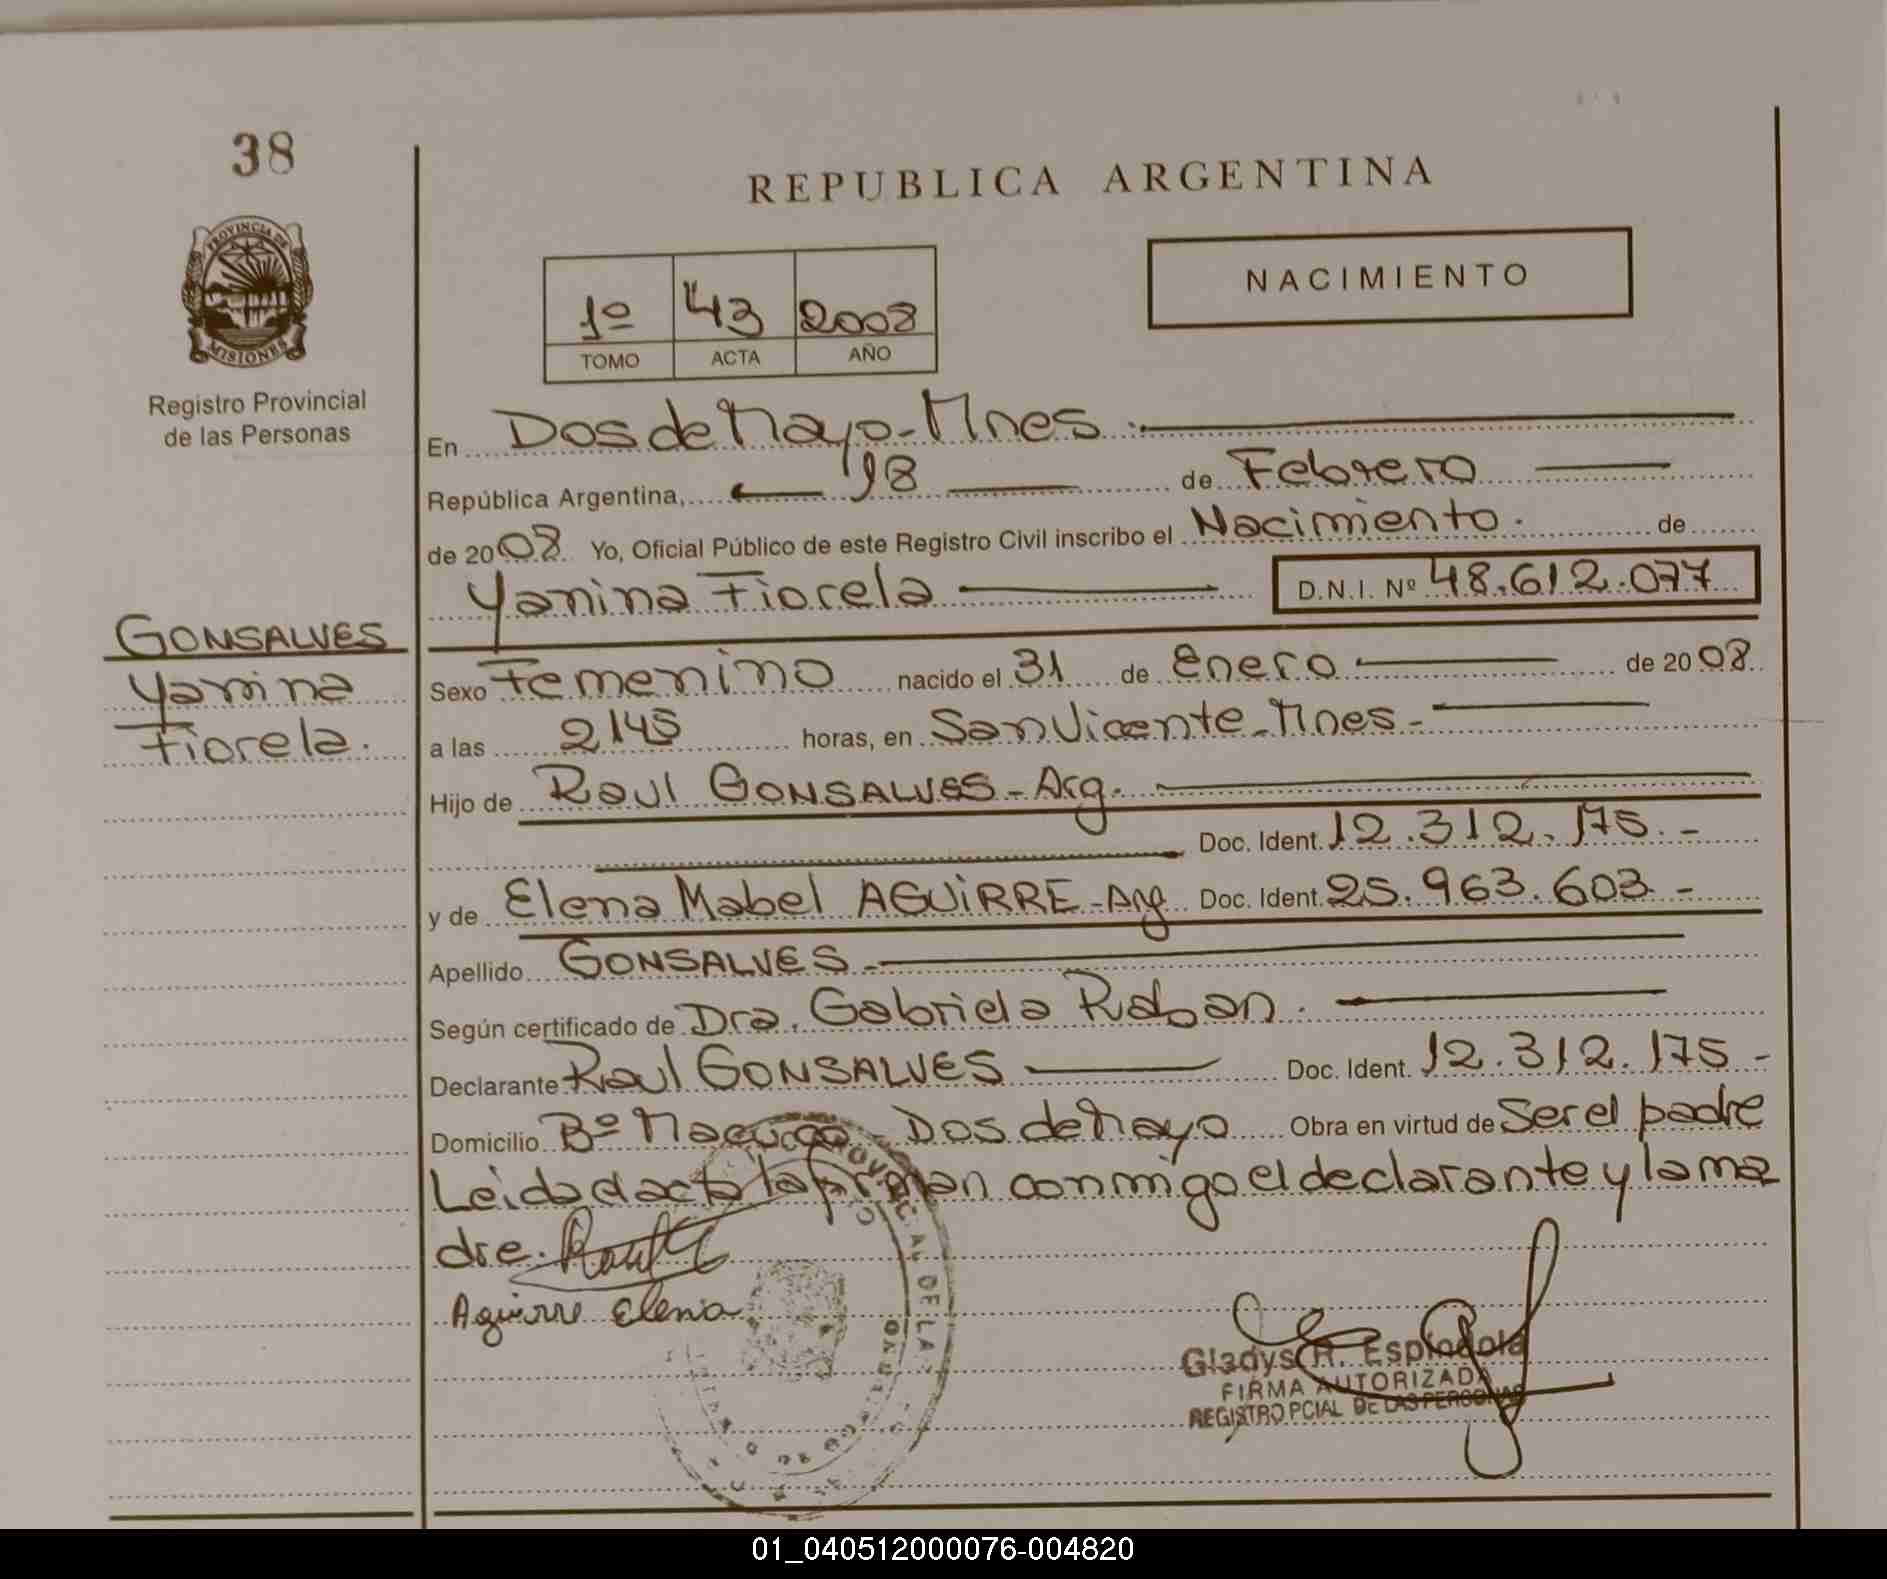 38
PROVINCIA DE
MISIONES
Registro Provincial
de las Personas
REPUBLICA ARGENTINA
1º 43 2008
TOMO ACTA AÑO
NACIMIENTO
En Dos de Mayo - Mnes.
República Argentina, 18 de Febrero
de 2008 Yo, Oficial Público de este Registro Civil inscribo el Nacimiento. de
Yanina Fiorela D.N.I. Nº 48.612.077
GONSALVES
Yanina
Fiorela.
Sexo Femenino nacido el 31 de Enero de 2008
a las 2145 horas, en San Vicente - Mnes -
Hijo de Raul GONSALVES - Arg.
Doc. Ident. 12.312.175.-
y de Elena Mabel AGUiRRE - Arg Doc. Ident. 25.963.603.-
Apellido GONSALVES.
Según certificado de Dra. Gabriela Raban.
Declarante Raul GONSALVES Doc. Ident. 12.312.175 -
Domicilio Bº - Dos de Mayo Obra en virtud de Ser el padre
Leida el acta la firman conmigo el declarante y la ma
dre.
Aguirre Elena
Gladys R. Espindola
FIRMA AUTORIZADA
REGISTRO PCIAL DE LAS PERSONAS
01_040512000076-004820